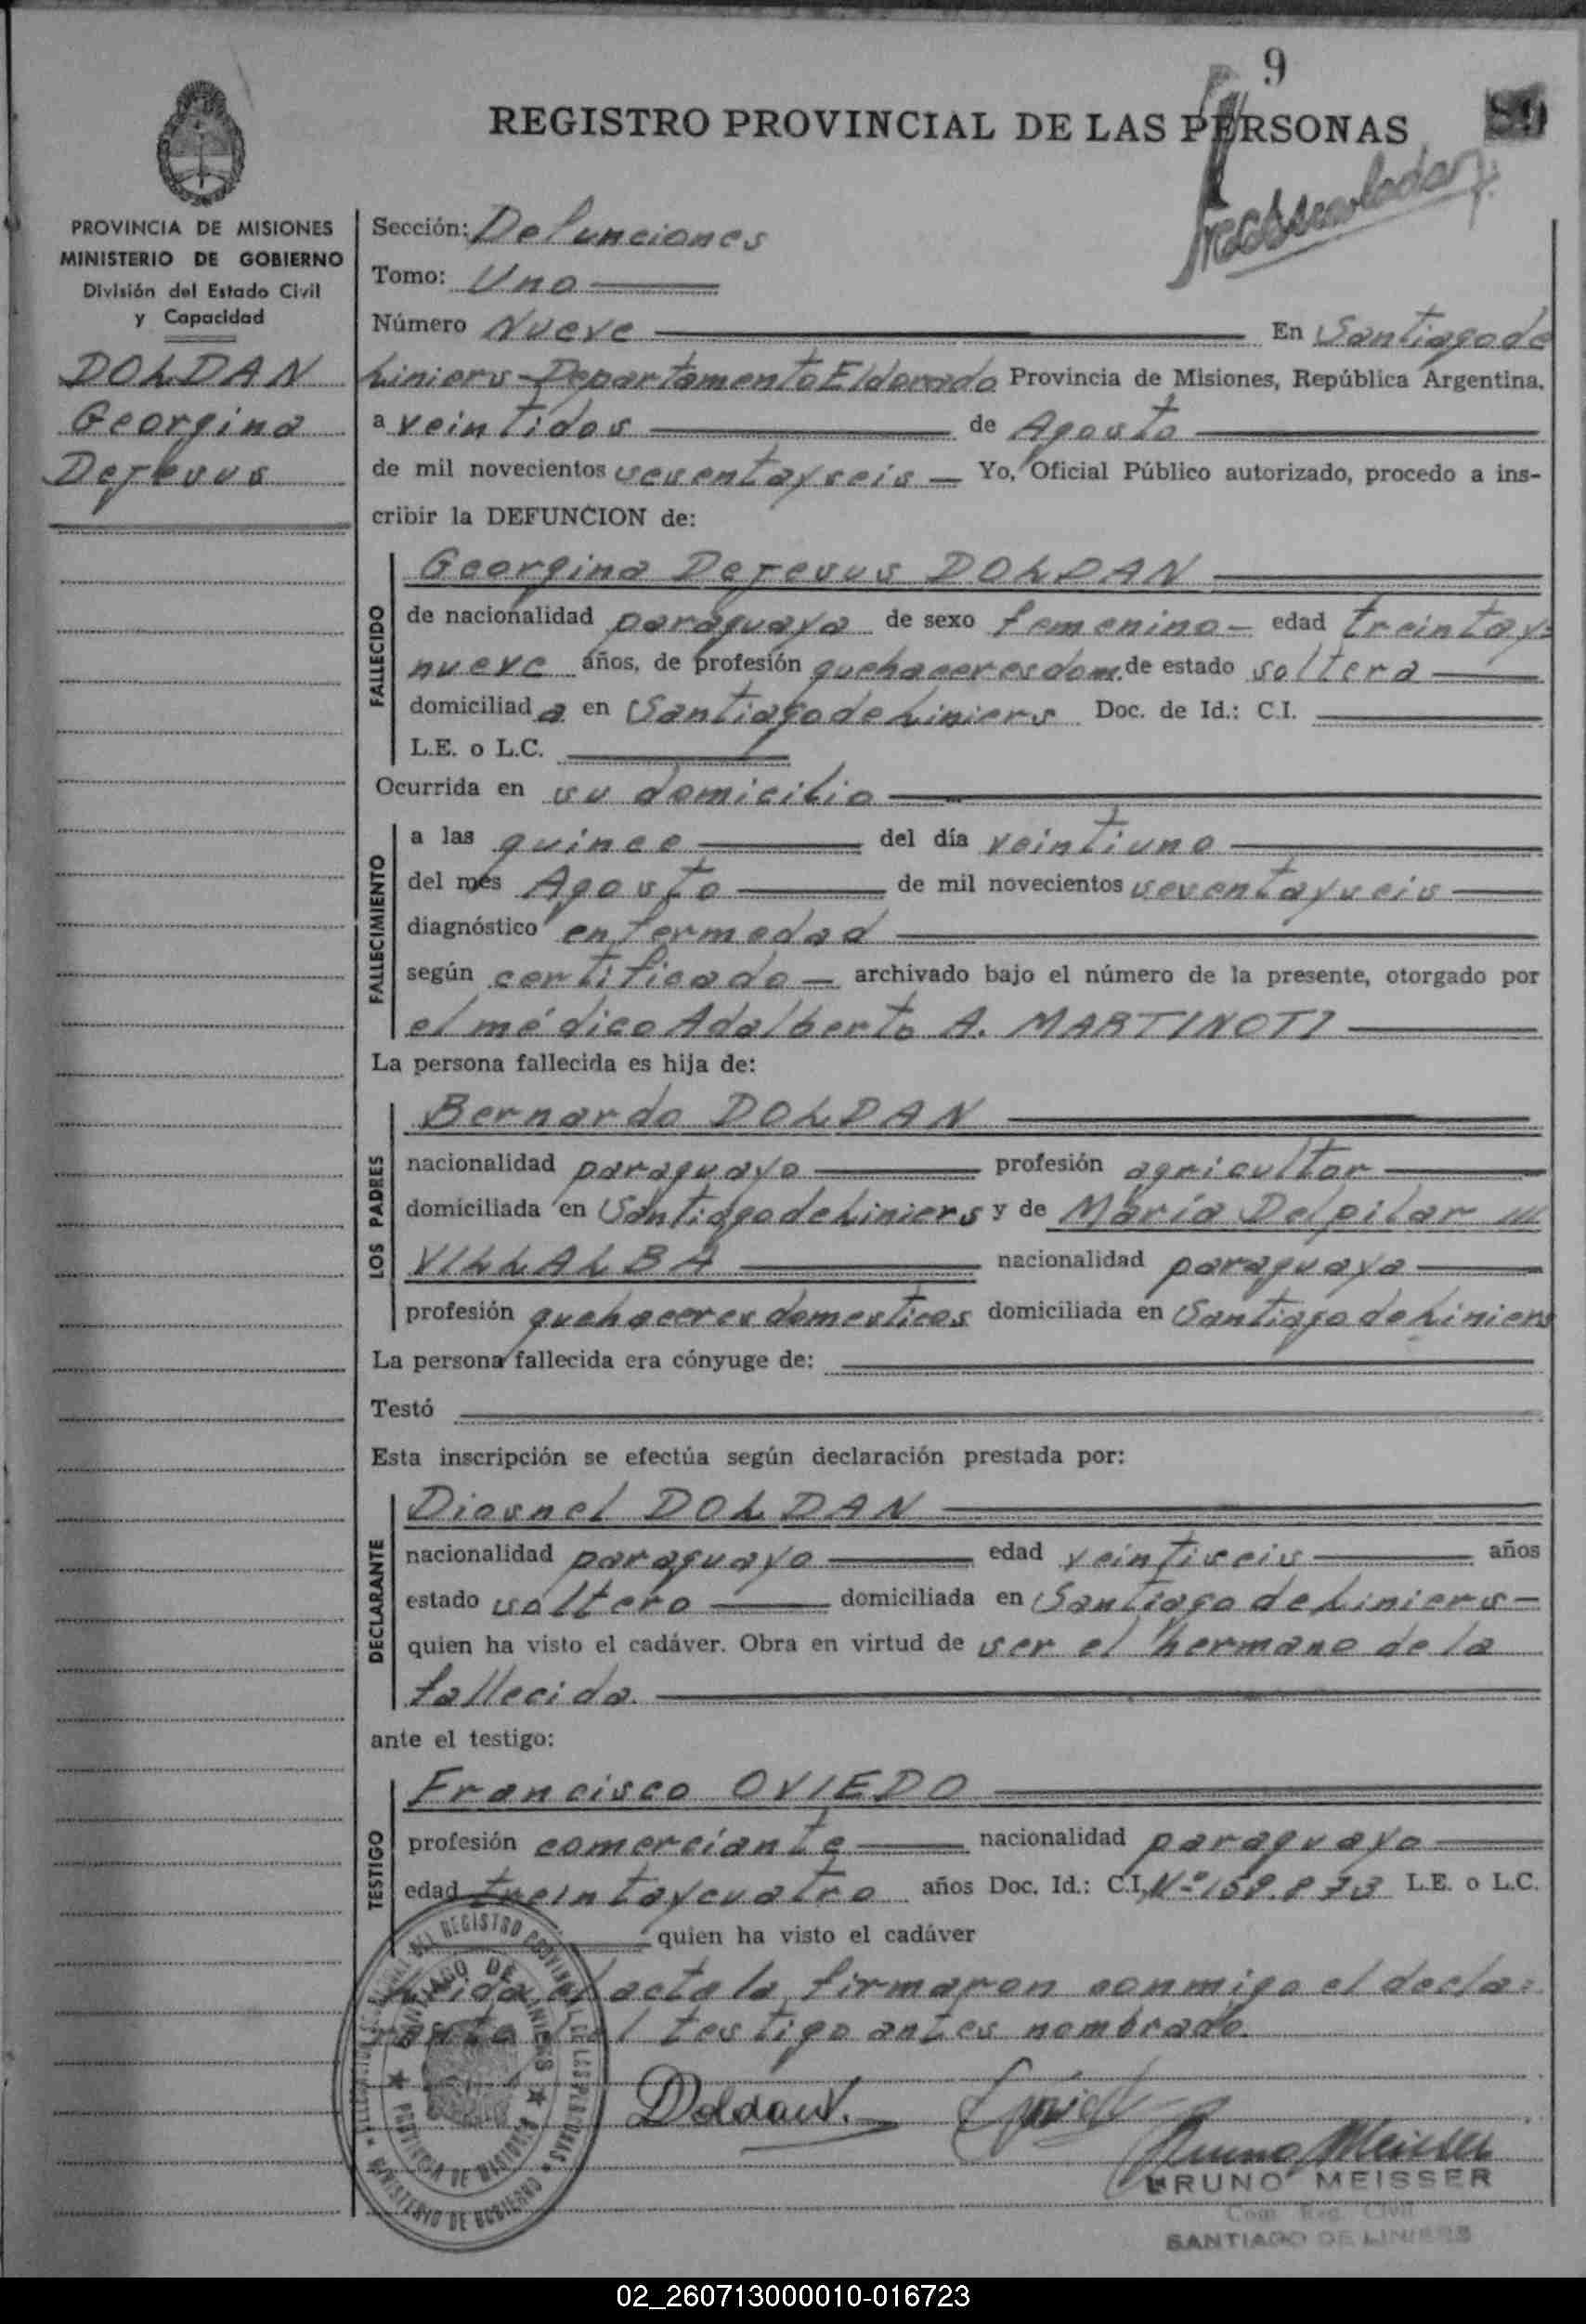 9
REGISTRO PROVINCIAL DE LAS PERSONAS
89
PROVINCIA DE MISIONES
MINISTERIO DE GOBIERNO
División del Estado Civil
y Capacidad
DOLDAN
Georgina
Dejesus
Sección: Defunciones
Tomo: Uno
Número Nueve En Santiago de
Liniers - Departamento Eldorado Provincia de Misiones, República Argentina,
a veintidos de Agosto
de mil novecientos sesentayseis Yo, Oficial Público autorizado, procedo a ins-
cribir la DEFUNCION de:
FALLECIDO
Georgina Dejesus DOLDAN
de nacionalidad paraguaya de sexo femenino - edad treintay=
nueve años, de profesión quehaceres dom. de estado soltera
domiciliad a en Santiago de Liniers Doc. de Id.: C.I.
L.E. o L.C.
Ocurrida en su domicilio
FALLECIMIENTO
a las quince del día veintiuno
del mes Agosto de mil novecientos sesentayseis
diagnóstico enfermedad
según certificado - archivado bajo el número de la presente, otorgado por
el médico Adalberto A. MARTINOTI
La persona fallecida es hija de:
LOS PADRES
Bernardo DOLDAN
nacionalidad paraguayo profesión agricultor
domiciliada en Santiago de Liniers y de María Delpilar
VILLALBA nacionalidad paraguaya
profesión quehaceres domesticos domiciliada en Santiago de Liniers
La persona fallecida era cónyuge de:
Testó
Esta inscripción se efectúa según declaración prestada por:
DECLARANTE
Diosnel DOLDAN
nacionalidad paraguayo edad veintiseis años
estado soltero domiciliada en Santiago de Liniers -
quien ha visto el cadáver. Obra en virtud de ser el hermano de la
fallecida.
ante el testigo:
TESTIGO
Francisco OVIEDO
profesión comerciante nacionalidad paraguayo
edad treintaycuatro años Doc. Id.: C.I. Nº 158.873 L.E. o L.C.
quien ha visto el cadáver
Leida el acta la firmaron conmigo el decla=
rante y el testigo antes nombrado.
DEL REGISTRO PROVINCIAL DE LAS PERSONAS
MINISTERIO DE GOBIERNO
SANTIAGO DE LINIERS
PROVINCIA DE MISIONES
Doldan.
Bruno Meisser
BRUNO MEISSER
Reg. Civil
SANTIAGO DE LINIERS
02_260713000010-016723